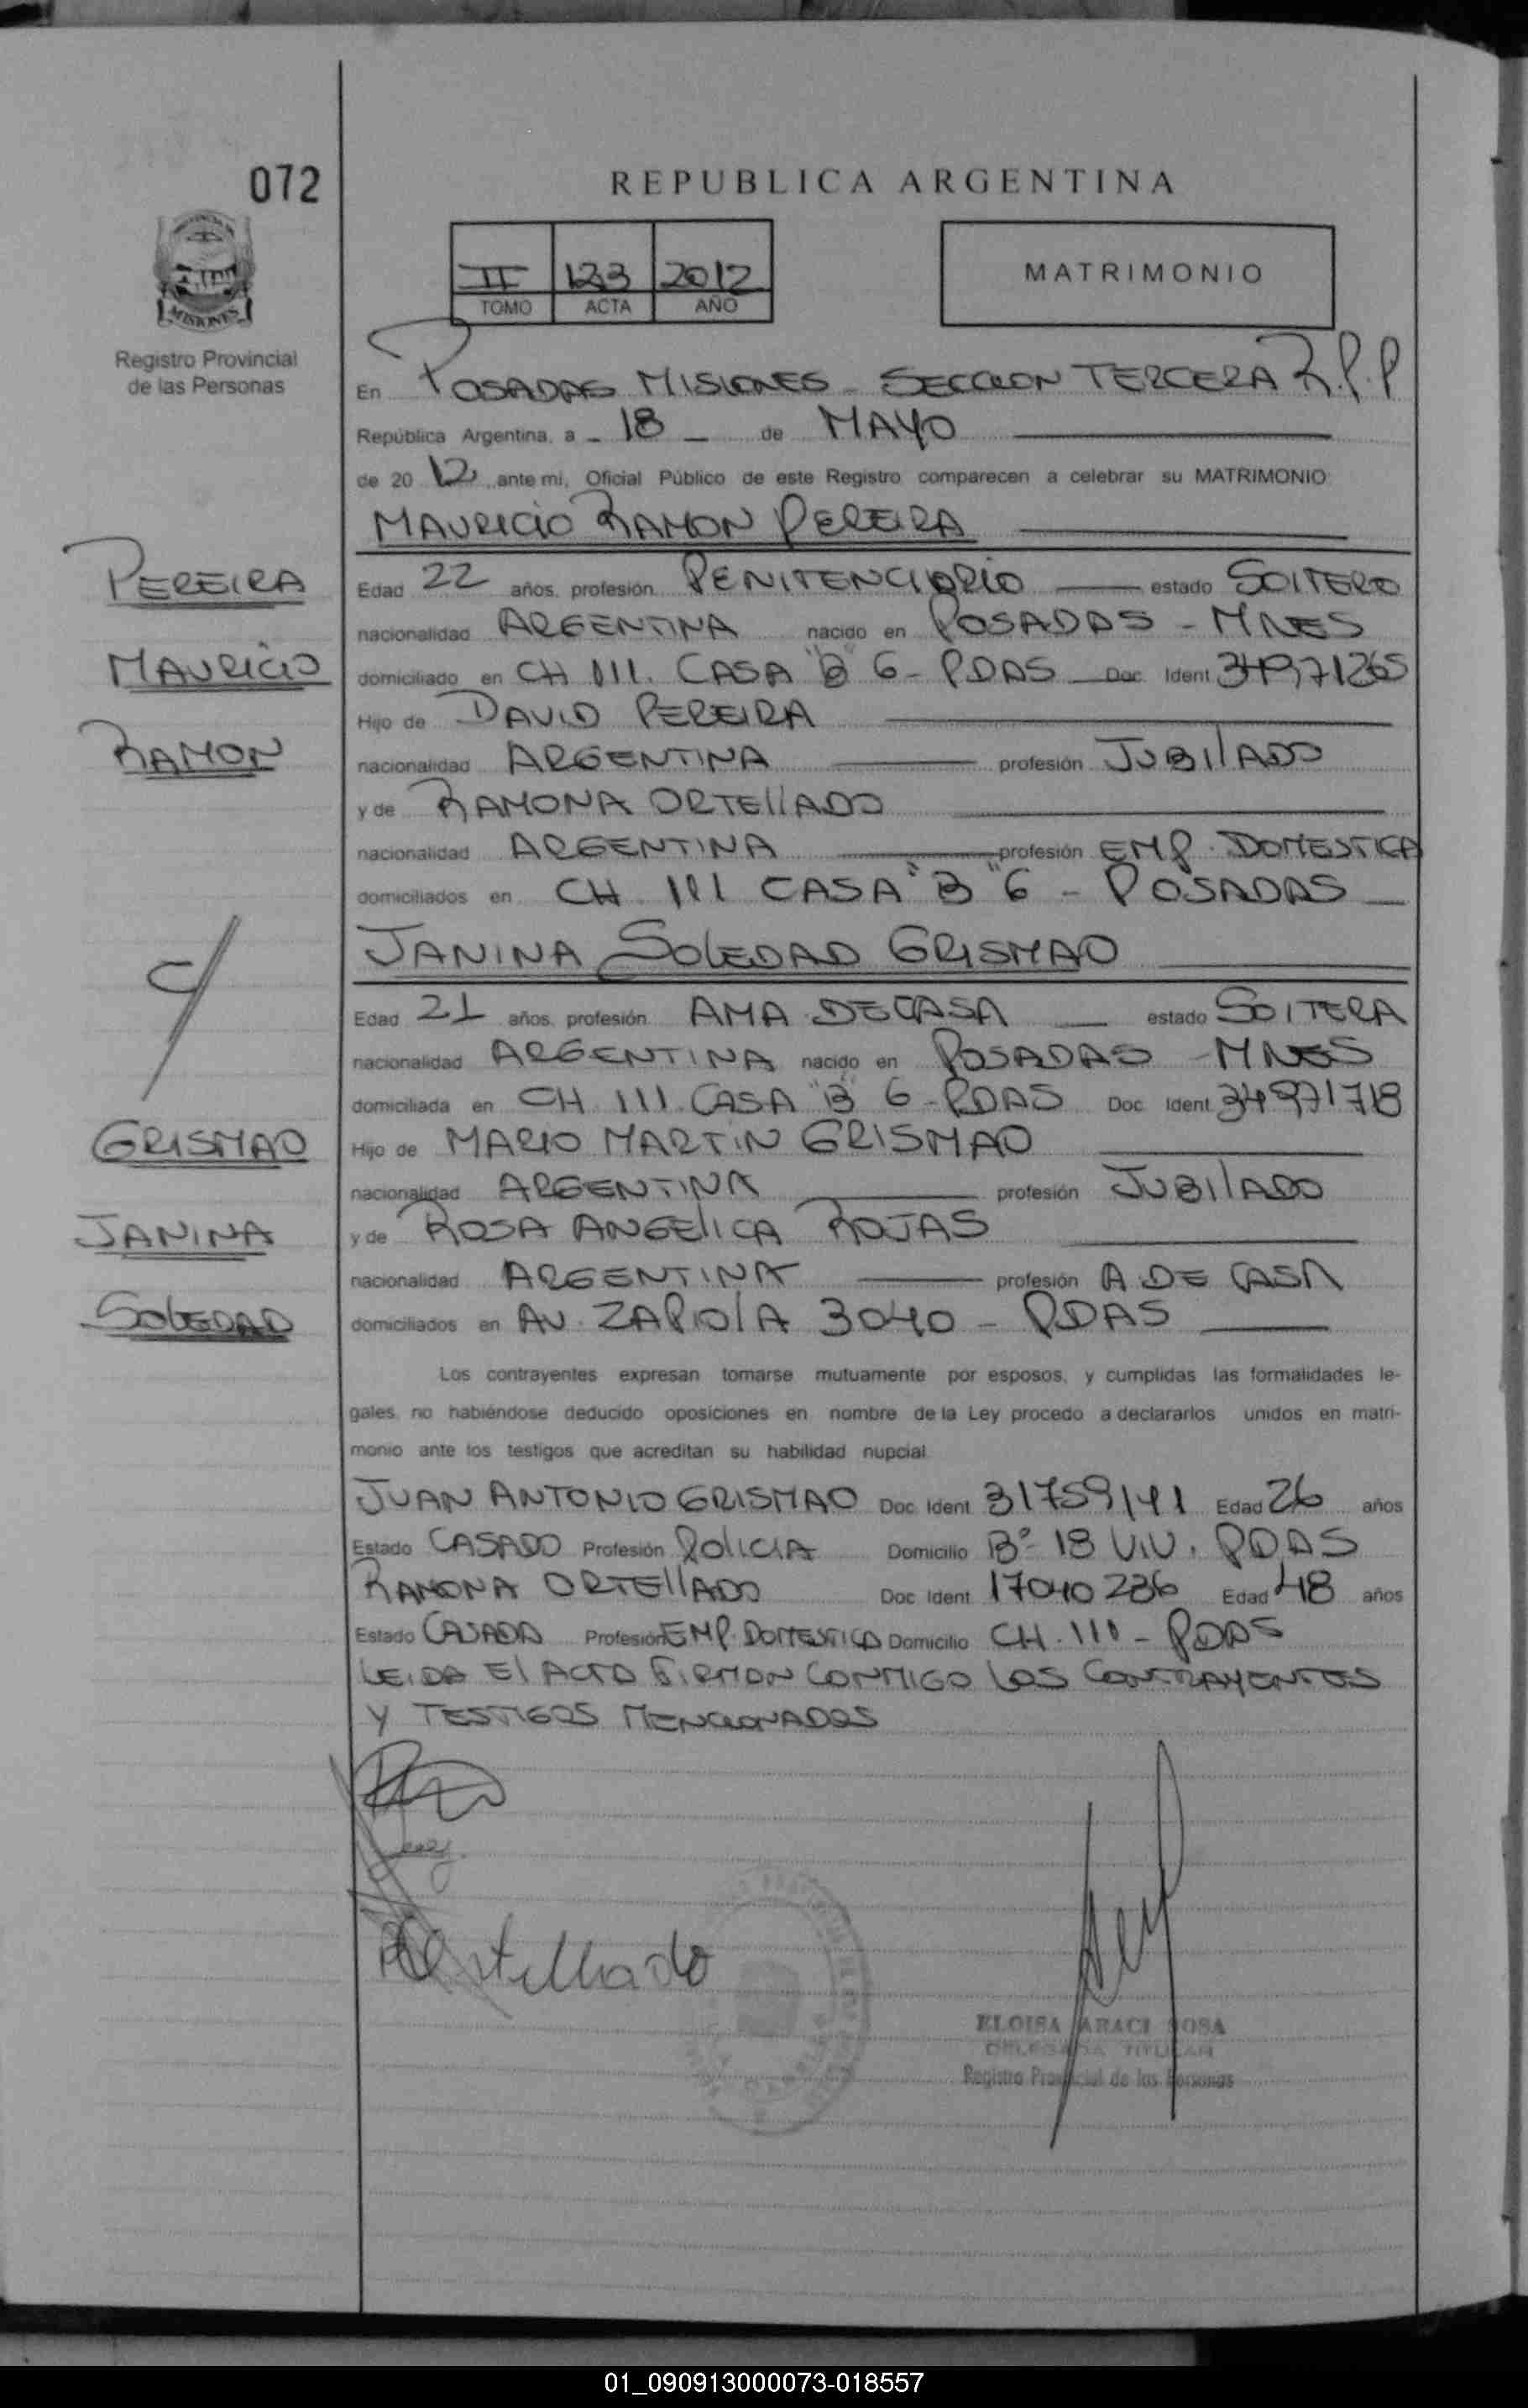 072
REPUBLICA ARGENTINA
II 123 2012
TOMO ACTA AÑO
MATRIMONIO
MISIONES
Registro Provincial
de las Personas
En POSADAS MISIONES - SECCION TERCERA R.P.P
República Argentina, a - 18 - de MAYO
de 20 12 ante mi, Oficial Público de este Registro comparecen a celebrar su MATRIMONIO:
MAURICIO RAMON PEREIRA
PEREIRA
MAURICIO
RAMON
Edad 22 años, profesión PENITENCIARIO estado SOLTERO
nacionalidad ARGENTINA nacido en POSADAS - MNES
domiciliado en CH 111. CASA "B" 6 - PDAS Doc. Ident 34971265
Hijo de DAVID PEREIRA
nacionalidad ARGENTINA profesión JUBILADO
y de RAMONA ORTELLADO
nacionalidad ARGENTINA profesión EMP. DOMESTICA
domiciliados en CH. 111 CASA "B" 6 - POSADAS
JANINA SOLEDAD GRISMAO
C/
GRISMAO
JANINA
SOLEDAD
Edad 21 años, profesión AMA DE CASA estado SOLTERA
nacionalidad ARGENTINA nacido en POSADAS - MNES
domiciliada en CH 111. CASA "B" 6 - PDAS Doc. Ident 34971718
Hijo de MARIO MARTIN GRISMAO
nacionalidad ARGENTINA profesión JUBILADO
y de ROSA ANGELICA ROJAS
nacionalidad ARGENTINA profesión A. DE CASA
domiciliados en AV. ZAPIOLA 3040 - PDAS
Los contrayentes expresan tomarse mutuamente por esposos, y cumplidas las formalidades le-
gales, no habiéndose deducido oposiciones en nombre de la Ley procedo a declararlos unidos en matri-
monio ante los testigos que acreditan su habilidad nupcial.
JUAN ANTONIO GRISMAO Doc. Ident 31759141 Edad 26 años
Estado CASADO Profesión POLICIA Domicilio B° 18 VIV. PDAS
RAMONA ORTELLADO Doc. Ident 17040286 Edad 48 años
Estado CASADA Profesión EMP. DOMESTICA Domicilio CH. 111 - PDAS
LEIDA EL ACTA FIRMAN CONMIGO LOS CONTRAYENTES
Y TESTIGOS MENCIONADOS
Ortellado
ELOISA ARACI SOSA
DELEGADA TITULAR
Registro Provincial de las Personas
01_090913000073-018557